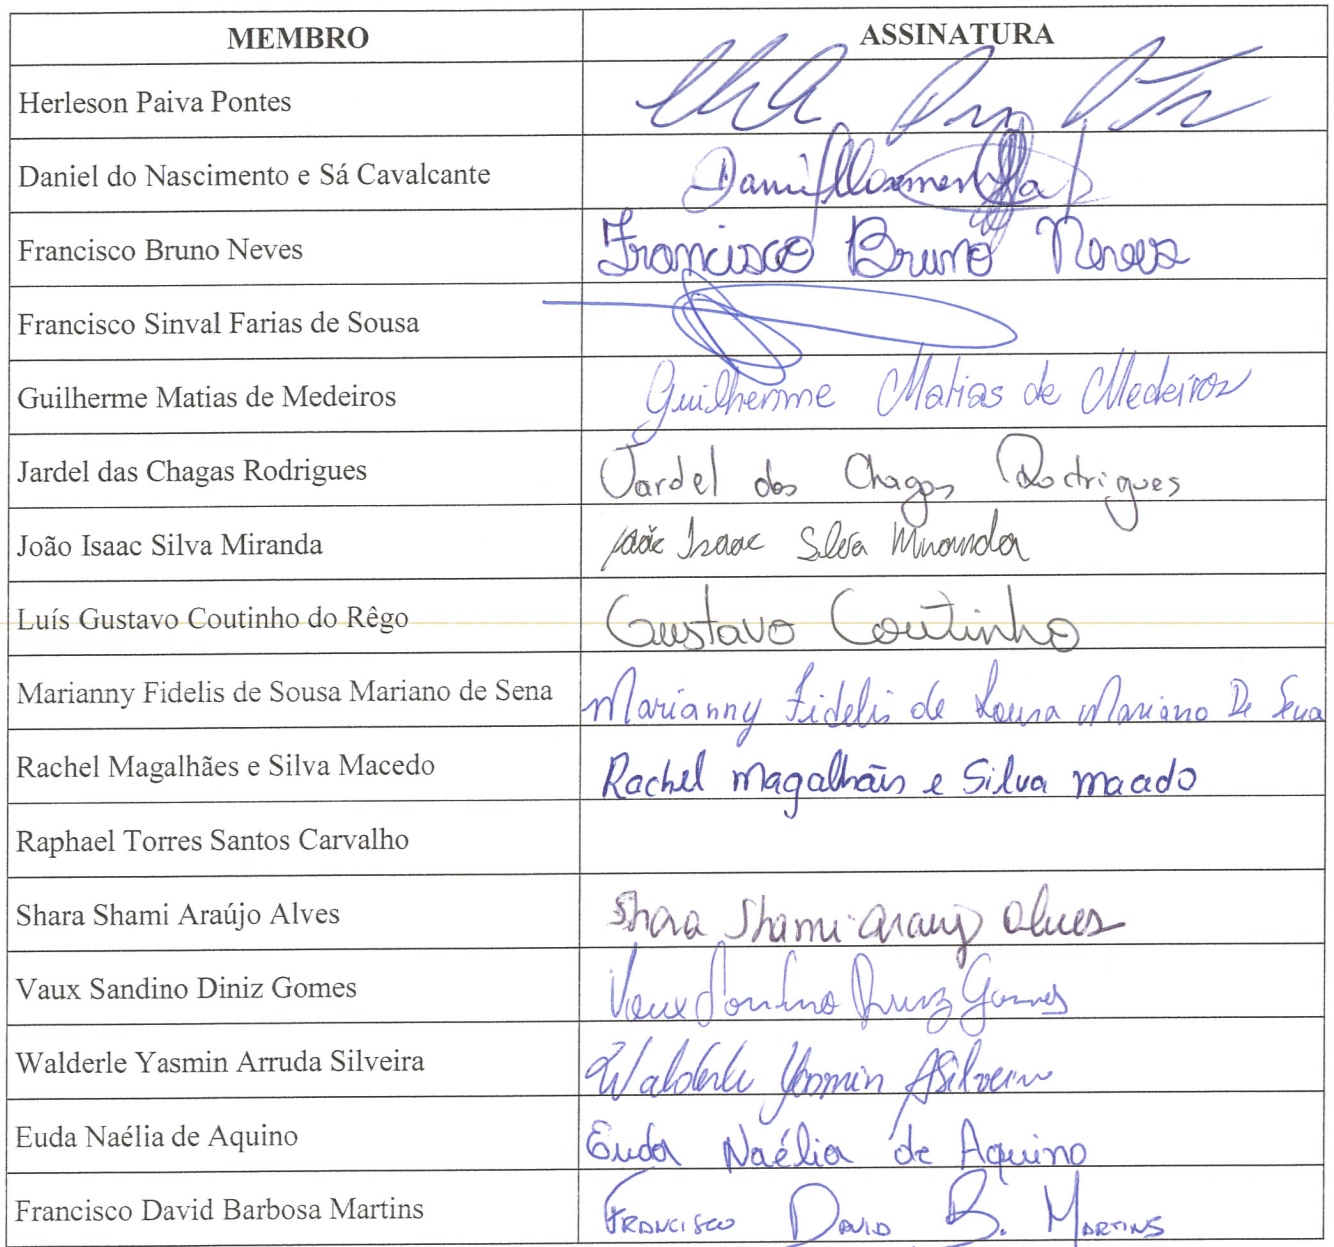 MEMBRO ASSINATURA
Herleson Paiva Pontes
Daniel do Nascimento e Sá Cavalcante
Francisco Bruno Neves Francisco Bruno Neves
Francisco Sinval Farias de Sousa
Guilherme Matias de Medeiros Guilherme Matias de Medeiros
Jardel das Chagas Rodrigues Jardel das Chagas Rodrigues
João Isaac Silva Miranda João Isaac Silva Miranda
Luís Gustavo Coutinho do Rêgo Gustavo Coutinho
Marianny Fidelis de Sousa Mariano de Sena Marianny Fidelis de Sousa Mariano De Sena
Rachel Magalhães e Silva Macedo Rachel Magalhães e Silva Macedo
Raphael Torres Santos Carvalho
Shara Shami Araújo Alves Shara Shami Araujo Alves
Vaux Sandino Diniz Gomes Vaux Sandino Diniz Gomes
Walderle Yasmin Arruda Silveira Walderle Yasmin A Silveira
Euda Naélia de Aquino Euda Naélia de Aquino
Francisco David Barbosa Martins Francisco David B. Martins